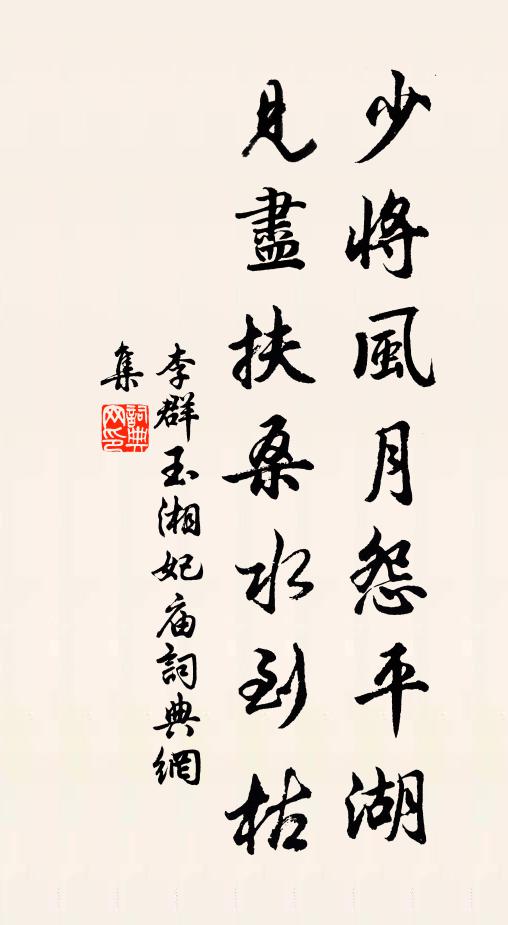 少將風月怨平湖
見盡扶桑水到枯
李群玉湘妃庙詞典網
集
詞典網印